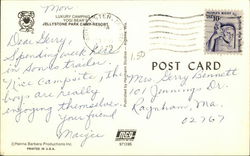 Mon
LUXURY CAMPING
JELLYSTONE PARK CAMP-RESORT
Dear Gery,
Spending week here
in Son's trailer.
Nice Campsite & the
boys are really
enjoying themselves.
your friend
Margie
POST CARD
Mrs Gery Bennett
101 Jennings Dr.
Raynham, Ma.
02767
© Hanna Barbera Productions Inc.
PRINTED IN U.S.A.